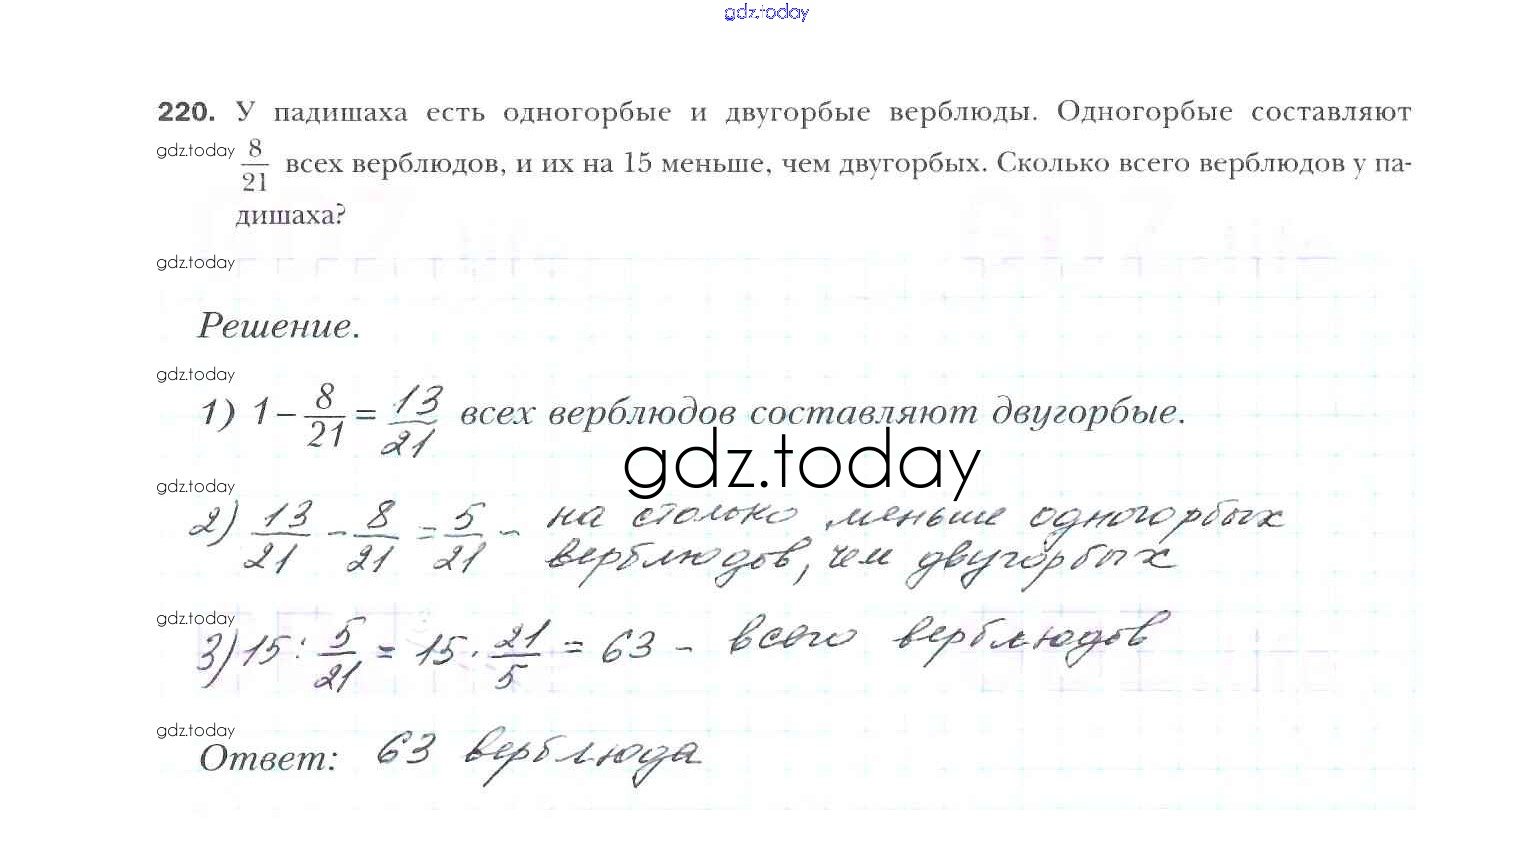 gdz.today
220. У падишаха есть одногорбые и двугорбые верблюды. Одногорбые составляют
gdz.today 8/21 всех верблюдов, и их на 15 меньше, чем двугорбых. Сколько всего верблюдов у па-
дишаха?
gdz.today
Решение.
gdz.today
1) 1 – 8/21 = 13/21 всех верблюдов составляют двугорбые.
gdz.today
gdz.today
2) 13/21 – 8/21 = 5/21 – на столько меньше одногорбых
верблюдов, чем двугорбых
gdz.today
3) 15 : 5/21 = 15 · 21/5 = 63 – всего верблюдов
gdz.today
Ответ: 63 верблюда